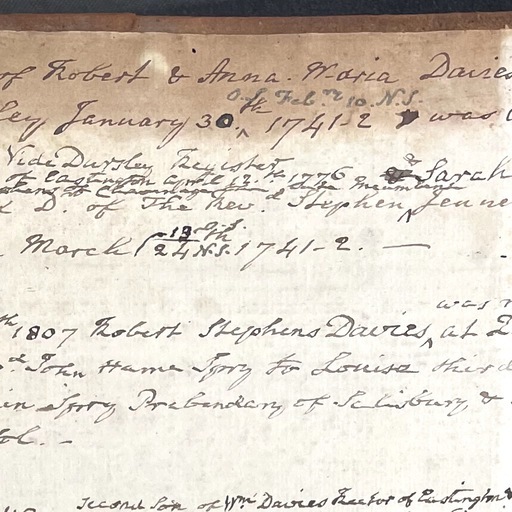 of Robert & Anna. Maria Davies
O.S. Feb.ry 10. N.S.
ley January 30.th 1741-2 was
Vide Dursley Register
of Eastington April 12.th 1776 & Sarah
& D. of The Rev.d Stephen Jenne
March 13 O.S. 24th N.S. 1741-2. —
was
th 1807 Robert Stephens Davies, at
d John Hume Spry to Louisa third
in Spry Prebendary of Salisbury, &
tol. -
Second Son of Wm. Davies Rector of Eastington &